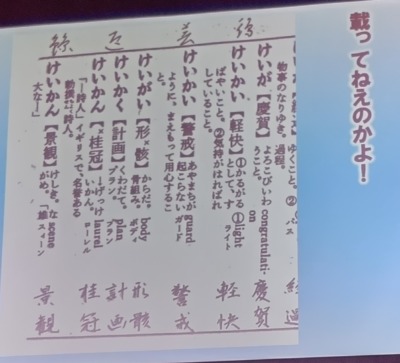 載ってねえのかよ！
ゆくこと。②
過程。
物事のなりゆき。
けいが【慶賀】よろこびいわ congratulati-
うこと。on
けいかい【軽快】①かるがる ①light
として、す ライト
ばやいこと。②気持がはればれ
していること。
けいかい【警戒】あやまちが guard
起こらない ガード
ように、まえもって用心するこ
と。
けいがい【形骸】からだ。body
骨組み。ボディ
けいかく【計画】くわだて。plan
プラン。プラン
けいかん【桂冠】げっけ laurel
いかん。ローレル
「―詩人」イギリスで、名誉ある
詩人。
けいかん【景観】けしき。な scene
がめ。「雄 スィーン
大な―」
慶賀
軽快
警戒
形骸
計画
桂冠
景観